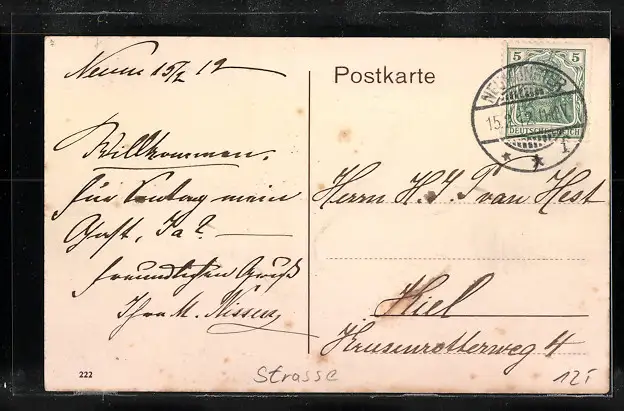 Neum 15/2 12
Willkommen,
für Sontag mein
Gast, Ja?
freundlichen Gruß
Ihre M. Nissen
222
Postkarte
5 5
DEUTSCHES REICH
NEUMÜNSTER
15.2.12
1
Herrn H. J. T. van Hest
Kiel
Krusenrotterweg 4
Strasse
121